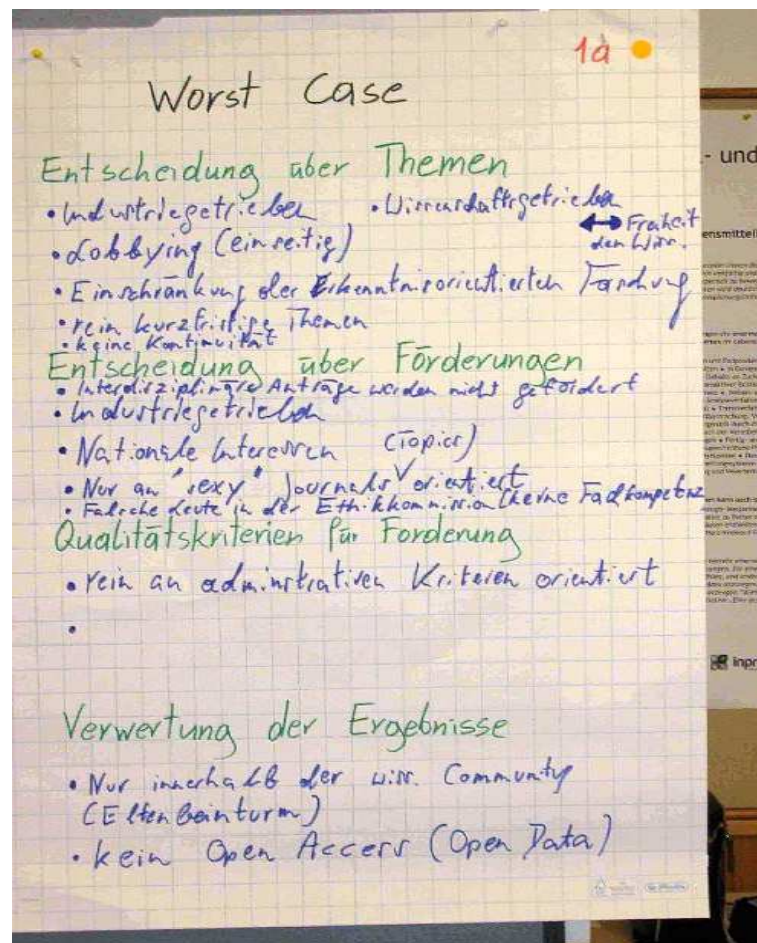 1a
Worst Case
Entscheidung über Themen
• Industriegetrieben • Wissenschaftsgetrieben
↔ Freiheit
• Lobbying (einseitig) den Wiss.
• Einschränkung der Erkenntnisorientierten Forschung
• rein kurzfristige Themen
• keine Kontinuität
Entscheidung über Förderungen
• Interdisziplinäre Anträge werden nicht gefördert
• Industriegetrieben
• Nationale Interessen (Topics)
• Nur an "sexy" Journals orientiert
• Falsche Leute in der Ethikkommission (keine Fachkompetenz
Qualitätskriterien für Förderung
• rein an adminstrativen Kriterien orientiert
•
Verwertung der Ergebnisse
• Nur innerhalb der wiss. Community
(Elfenbeinturm)
• kein Open Access (Open Data)
- und
ensmittel
inpr